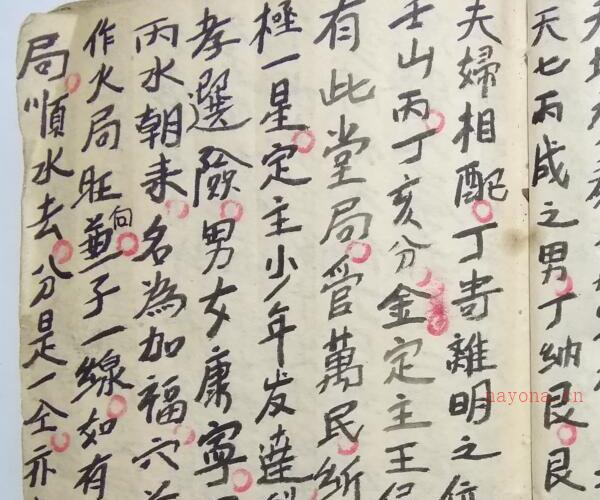 天七丙成之男丁納艮艮
夫婦相配丁寄離明之位
壬山丙丁亥分金定主王侯
有此堂局管萬民
極一星定主少年发達
孝選險男女康寧
丙水朝来名為加福穴
作火局旺向兼子一線如有
局順水去分是一仝亦
nayona.cn